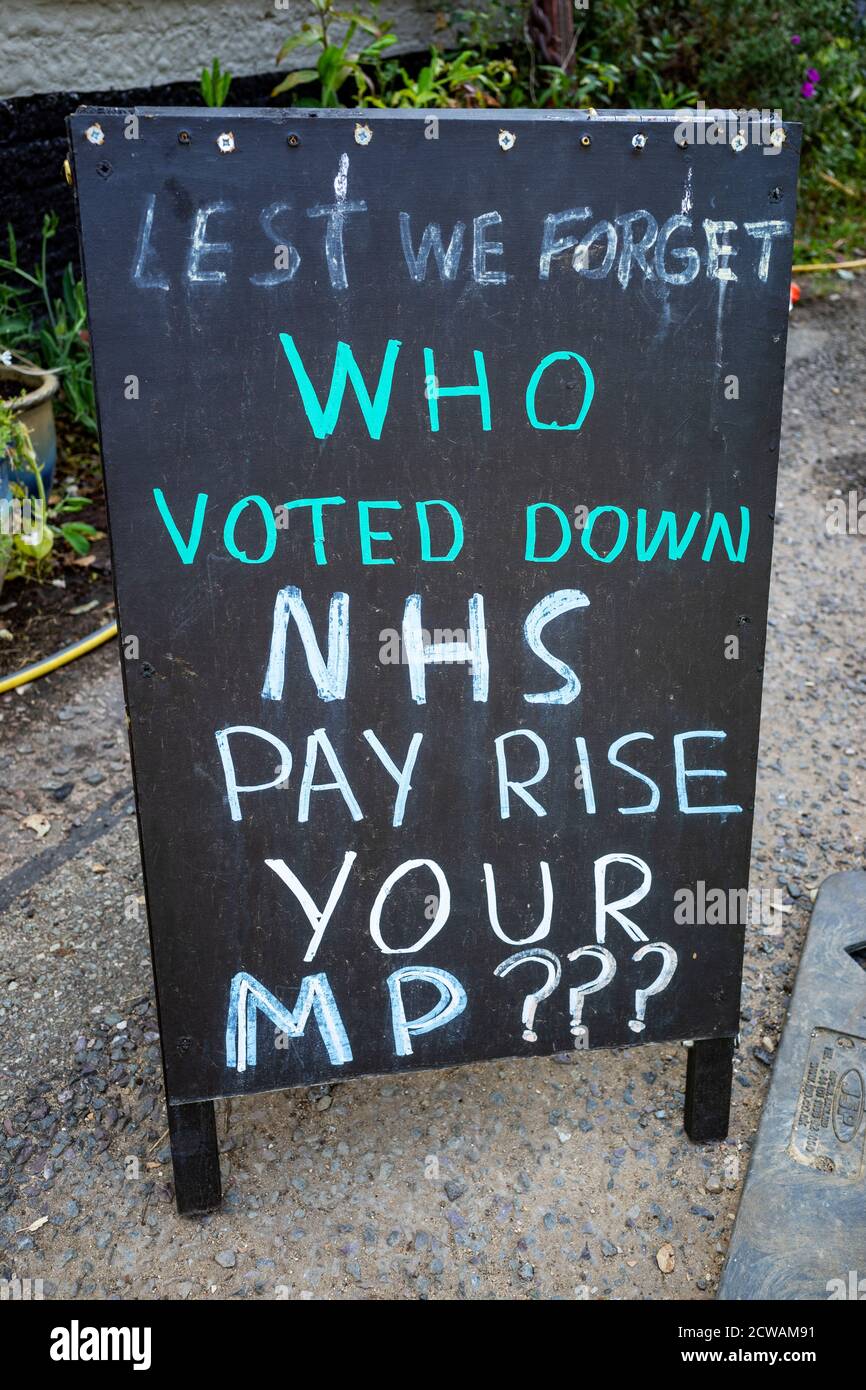 LEST WE FORGET
WHO
VOTED DOWN
NHS
PAY RISE
YOUR
MP???
alamy
Image ID: 2CWAM91
www.alamy.com